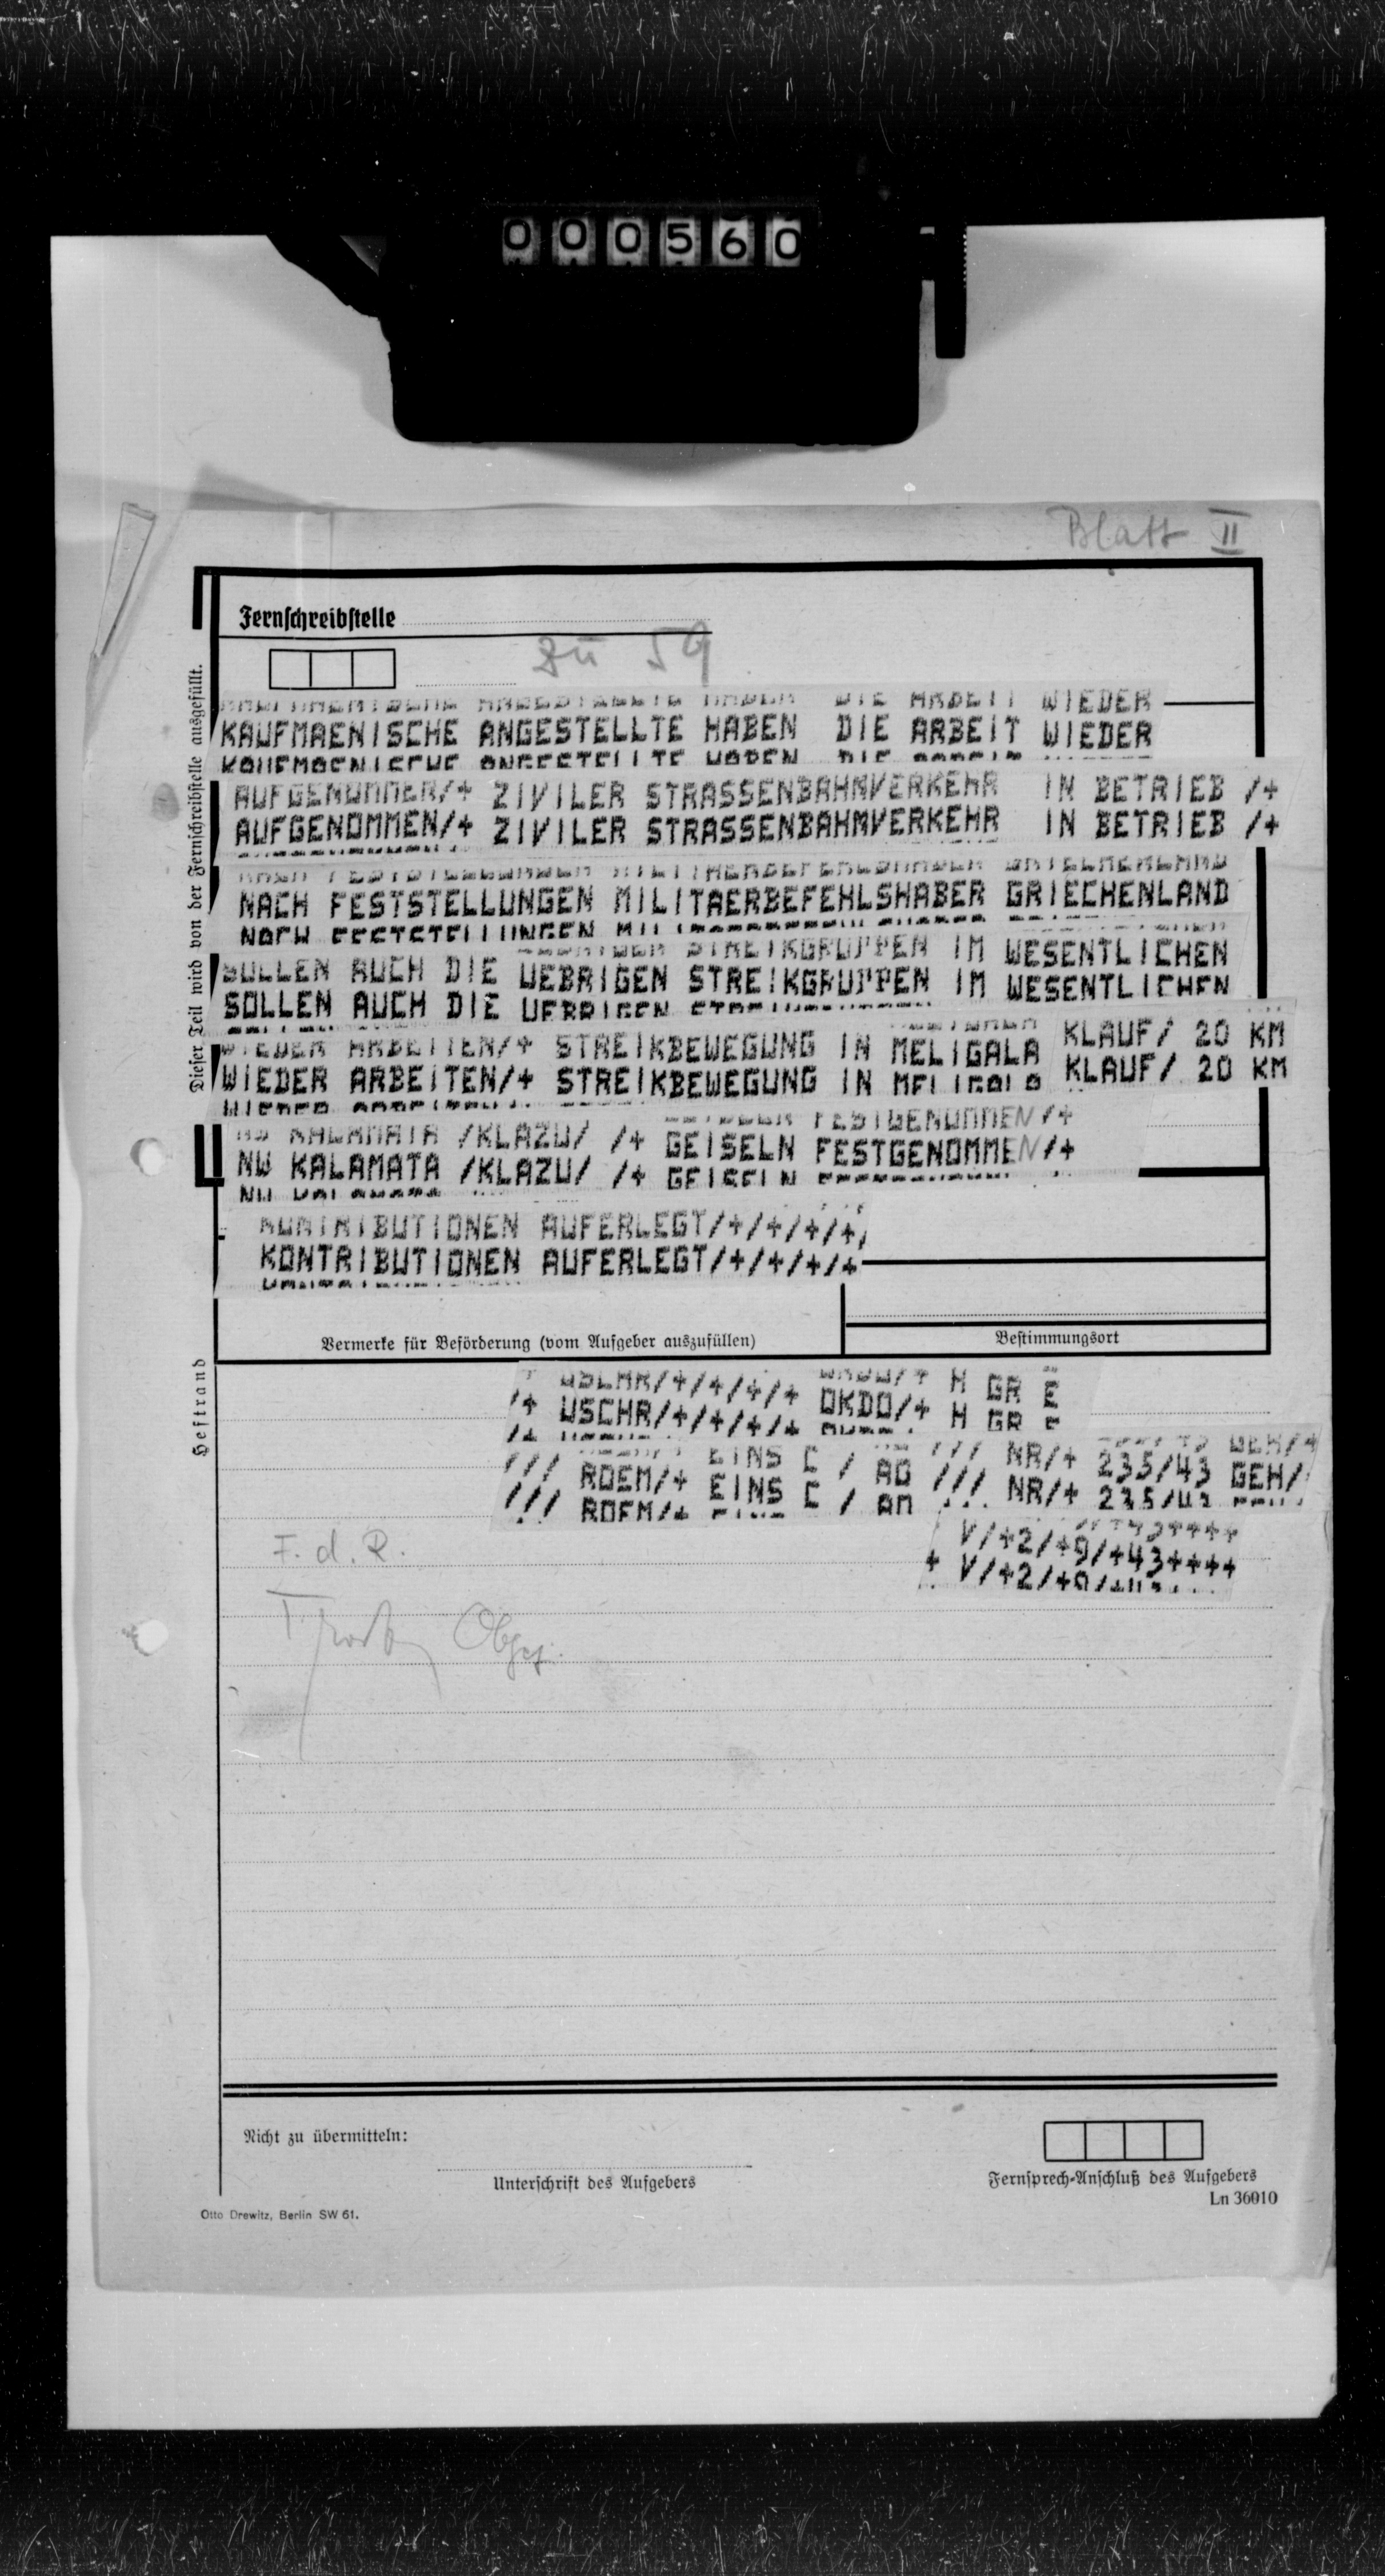 000560
Blatt II
Fernschreibstelle
zu 59
KAUFMAENISCHE ANGESTELLTE HABEN DIE ARBEIT WIEDER
AUFGENOMMEN/+ ZIVILER STRASSENBAHNVERKEHR IN BETRIEB /+
NACH FESTSTELLUNGEN MILITAERBEFEHLSHABER GRIECHENLAND
SOLLEN AUCH DIE UEBRIGEN STREIKGRUPPEN IM WESENTLICHEN
WIEDER ARBEITEN/+ STREIKBEWEGUNG IN MELIGALA KLAUF/ 20 KM
NW KALAMATA /KLAZU/ /+ GEISELN FESTGENOMMEN/+
KONTRIBUTIONEN AUFERLEGT/+/+/+/+
Dieser Teil wird von der Fernschreibstelle ausgefüllt.
Vermerke für Beförderung (vom Aufgeber auszufüllen)
Bestimmungsort
Heftrand
/+ USCHR/+/+/+/+ OKDO/+ H GR E
/// ROEM/+ EINS C / AO /// NR/+ 235/43 GEH/
+ V/+2/+9/+43++++
F. d. R.
Obgefr.
Nicht zu übermitteln:
Unterschrift des Aufgebers
Fernsprech-Anschluß des Aufgebers
Ln 36010
Otto Drewitz, Berlin SW 61.